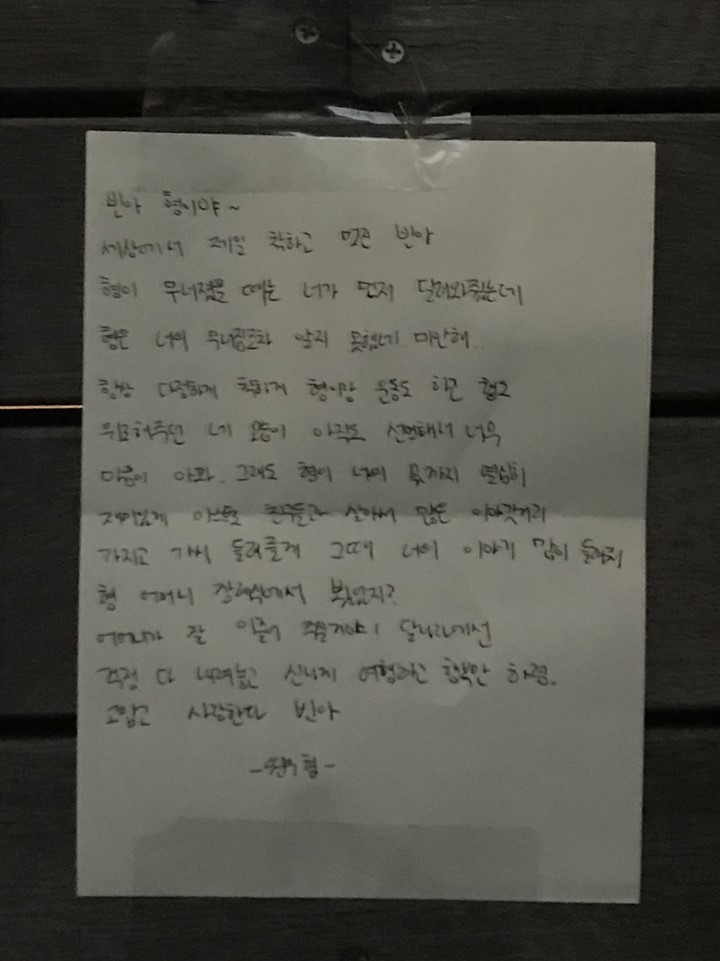 빈아 형이야~
세상에서 제일 착하고 멋진 빈아
형이 무너졌을 때는 너가 먼저 달려와줬는데
형은 너의 무너짐조차 알지 못했네 미안해..
항상 다정하게 착하게 형이랑 운동도 하곤 했고
위로해주던 네 모습이 아직도 선명해서 너무
마음이 아파. 그래도 형이 너의 몫까지 열심히
재미있게 아스트로 친구들과 살아서 많은 이야깃거리
가지고 가서 들려줄게 그때 너의 이야기 많이 들려줘
형 어머니 장례식에서 봤었지?
어머니가 잘 이끌어 주실거야! 달나라에선
걱정 다 내려놓고 신나게 여행하고 행복만 하렴.
고맙고 사랑한다 빈아
형-